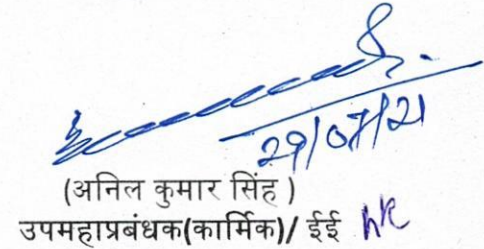 29/07/21
(अनिल कुमार सिंह )
उपमहाप्रबंधक(कार्मिक)/ ईई